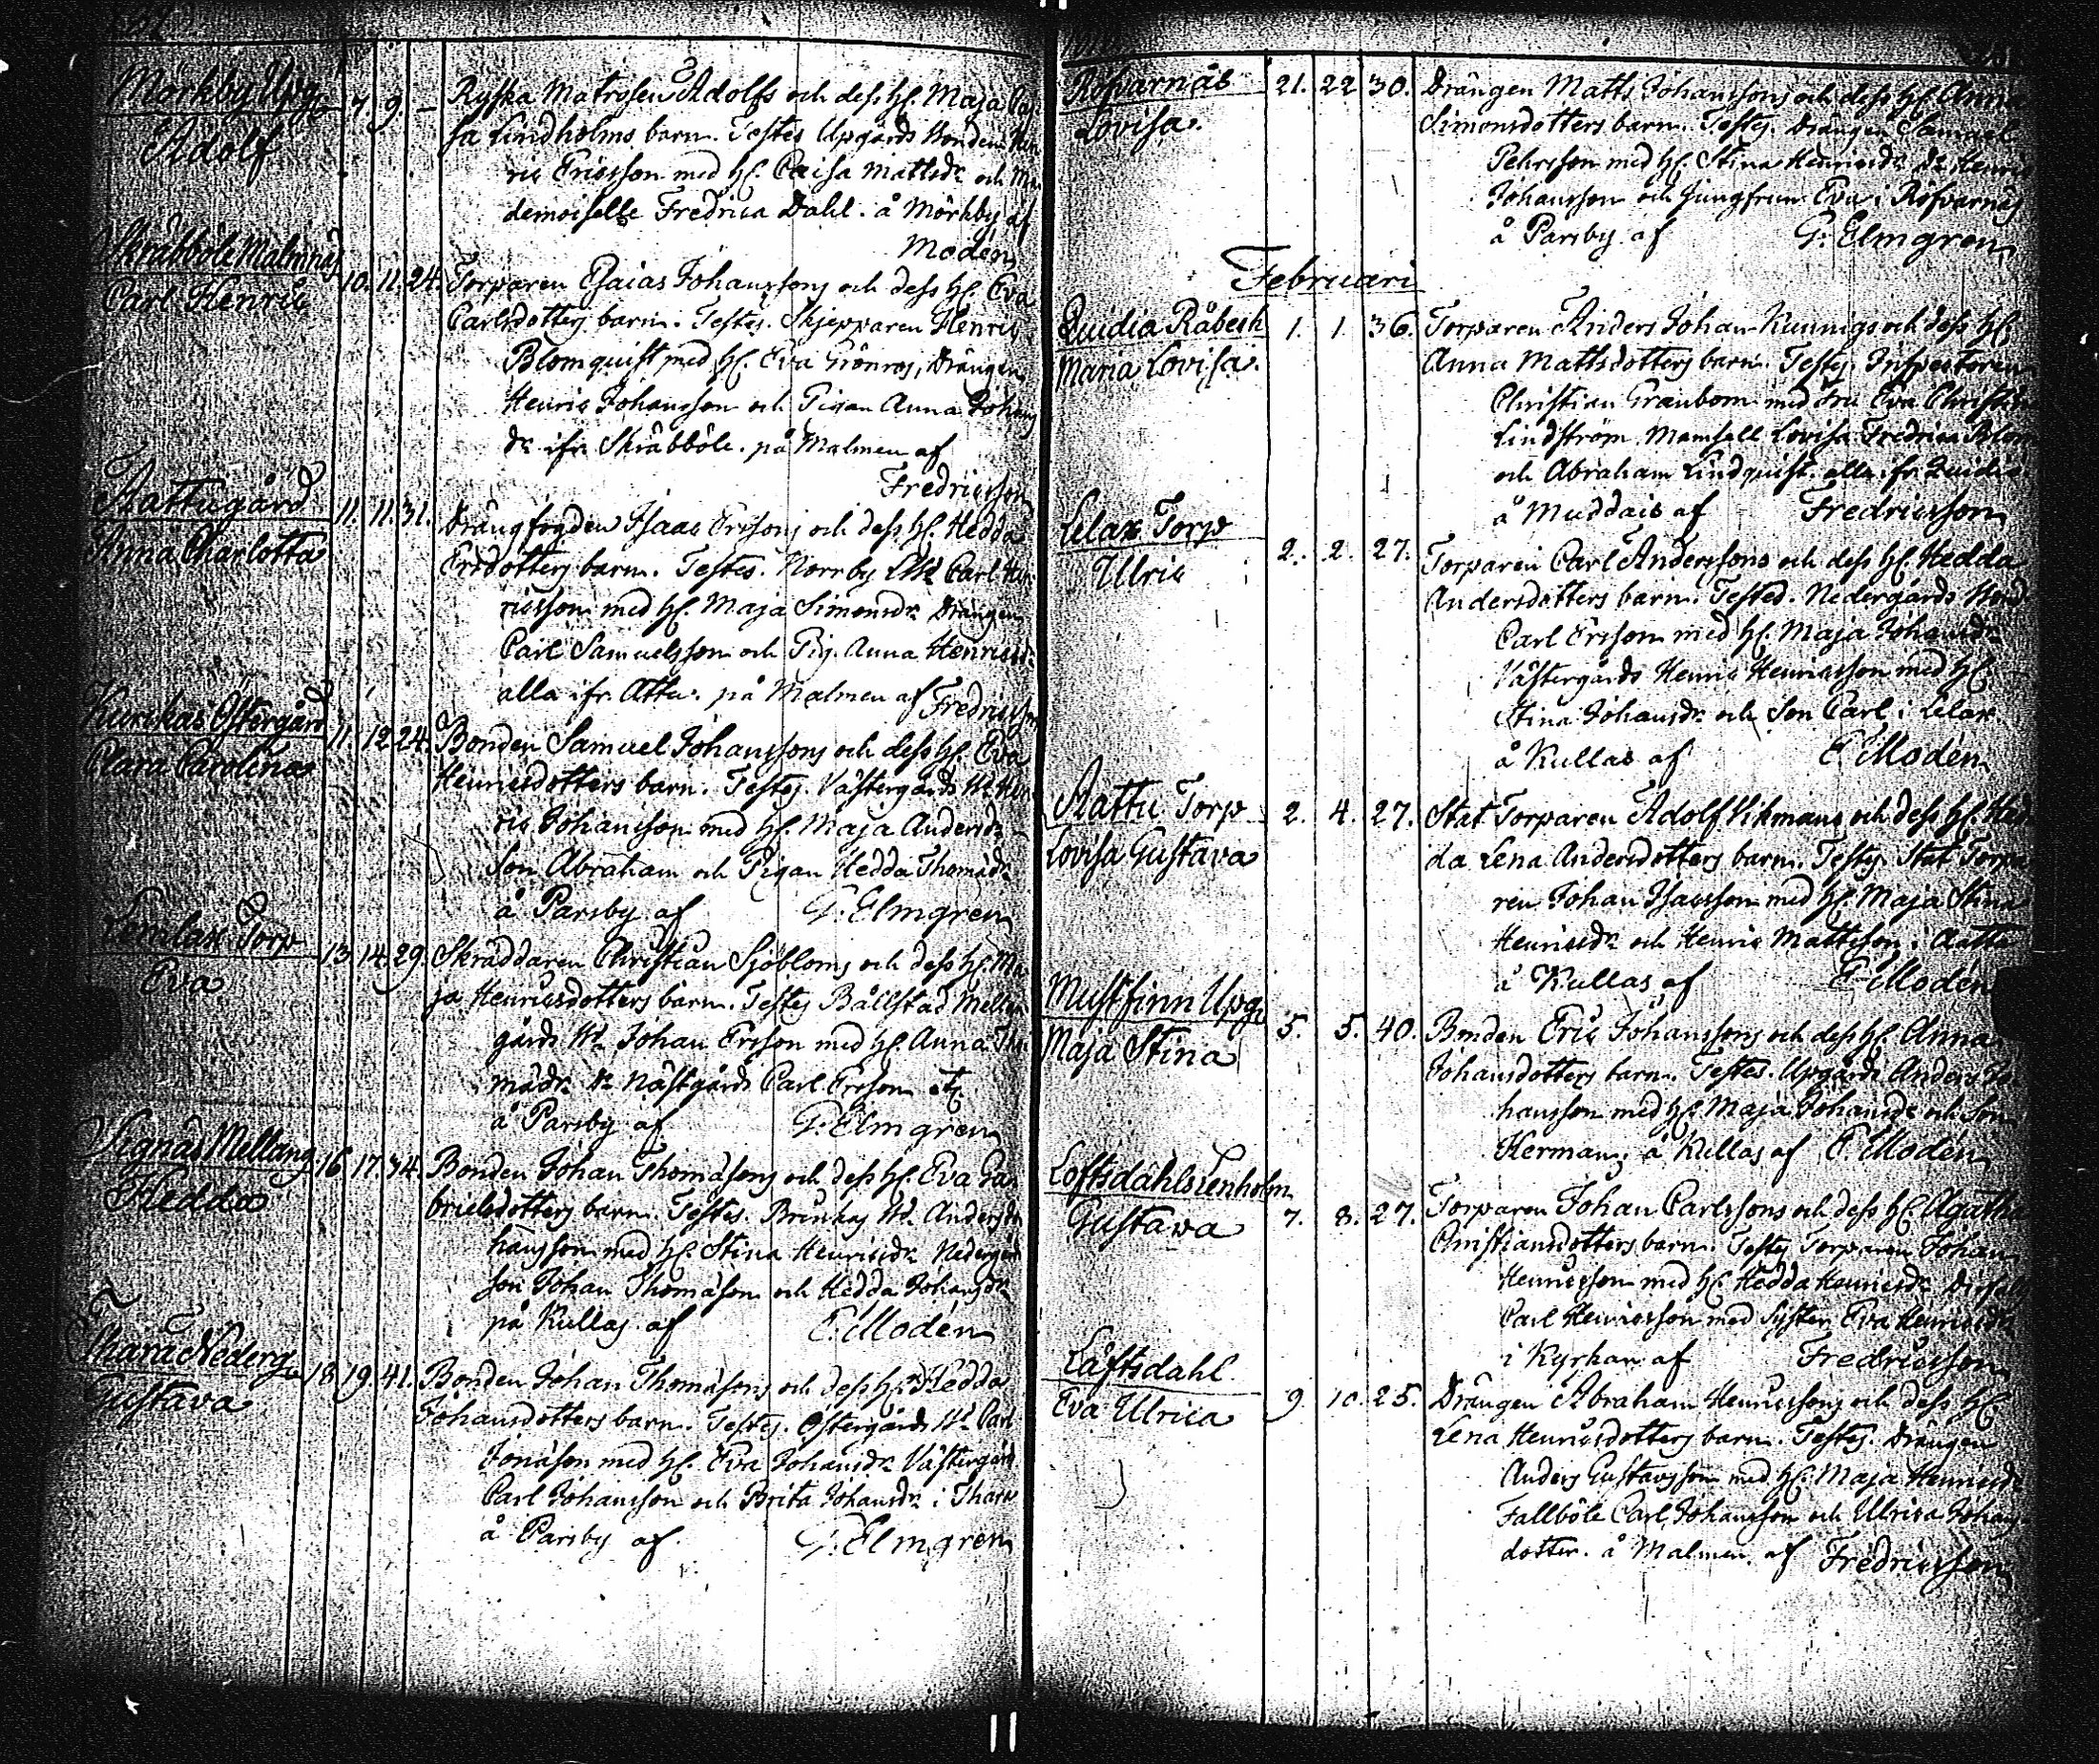 Mörkby Upg.
Adolf
7. 9. –
Ryska Matrosen Adolfs och dess h. Maja Cai
sa Lindholms barn. Testes Upgårds Bonden Hen
ric Ericsson med h. Caisa Mattsdr och Ma
demoiselle Fredrica Dahl. å Mörkby af
Modén
Skräbböle Malmnäs
Carl Henric
10. 11. 24.
Torparen Esaias Johanssons och dess h. Eva
Carlsdotters barn. Testes. Skjepparen Henric
Blomquist med h. Eva Grönros, Drängen
Henric Johansson och Pigan Anna Johans
dr ifr. Skräbböle. på Malmen af
Fredricsson
Aattugård
Anna Charlotta
11. 11. 31.
Drängfogden Isaac Ersons och dess h. Hedda
Ersdotters barn. Testes. Norrby Carl Hen
ricsson med h. Maja Simonsdr Drängen
Carl Samuelsson och Pig. Anna Henricsdr
alla ifr. Attu. på Malmen af Fredricsson
Kurckas Östergård
Clara Carolina
11. 12. 24.
Bonden Samuel Johanssons och dess h. Eva
Henricsdotters barn. Testes. Västergårds Hen
ric Johansson med h. Maja Andersdr
Son Abraham och Pigan Hedda Thomasdr
å Parsby af G. Elmgren
Lemlax Torp
Eva
13. 14. 29.
Skräddaren Christian Sjöbloms och dess h. Ma
ja Henricsdotters barn. Testes Bällstad Mellan
gårds Johan Ersson med h. Anna Tho
masdr Nästgårds Carl Ersson
å Parsby af G. Elmgren
Signäs Mellang.
Hedda
16. 17. 34.
Bonden Johan Thomassons och dess h. Eva Ga
brielsdotters barn. Testes. Brinkas Anders Jo
hansson med h. Stina Henricsdr Nedergårds
son Johan Thomasson och Hedda Johansdr
på Kullas af E. Modén
Thara Nederg.
Gustava
18. 19. 41.
Bonden Johan Thomassons och dess h. Hedda
Johansdotters barn. Testes. Östergårds Carl
Jonasson med h. Eva Johansdr Västergårds
Carl Johansson och Brita Johansdr i Thara
å Parsby af. G. Elmgren
Rofvarnäs
Lovisa.
21. 22. 30.
Drängen Matts Johanssons och dess h. Anna
Simonsdotters barn. Testes. Drängen Samuel
Pehrsson med h. Stina Henricsdr Dr. Henric
Johansson och Jungfrun Eva i Rofvarnäs
å Parsby af G. Elmgren
Februari
Qvidia Råbeck
Maria Lovisa.
1. 1. 36.
Torparen Anders Johan Kunnigs och dess h.
Anna Mattsdotters barn. Testes. Inspectoren
Christian Granbom med Fru Eva Christina
Lindström. Mamsell Lovisa Fredrica Blom
och Abraham Lindquist. alla ifr. Qvidia
å Muddais af Fredricsson
Lelax Torp
Ulric
2. 2. 27.
Torparen Carl Anderssons och dess h. Hedda
Andersdotters barn. Testes. Nedergårds
Carl Ersson med h. Maja Johansdr
Västergårds Henric Henricsson med h.
Stina Johansdr och Son Carl i Lelax.
å Kullas af E. Modén
Aattu Torp
Lovisa Gustava
2. 4. 27.
Stat Torparen Adolf Vikmans och dess h. Hed
da Lena Andersdotters barn. Testes Stat Torpa
ren Johan Isacsson med h. Maja Stina
Henricsdr och Henric Mattsson i Aattu
å Kullas af E. Modén
Mustfinn Upg.
Maja Stina
5. 5. 40.
Bonden Eric Johanssons och dess h. Anna
Johansdotters barn. Testes. Upgårds Anders Jo
hansson med h. Maja Johansdr och Son
Herman, å Kullas af E. Modén
Loftsdahls Lenholm
Gustava
7. 8. 27.
Torparen Johan Carlssons och dess h. Agatha
Christiansdotters barn. Testes Torparen Johan
Henricsson med h. Hedda Henricsdr
Carl Henricsson med Syster Eva Henricsdr
i Kyrkan af Fredricsson
Låftsdahl.
Eva Ulrica
9. 10. 25.
Drängen Abraham Henricssons och dess h.
Lena Henricsdotters barn. Testes. Drängen
Anders Gustavsson med h. Maja Henricsdr
Fallböle Carl Johansson och Ulrica Johans
dotter. å Malmen. af Fredricsson